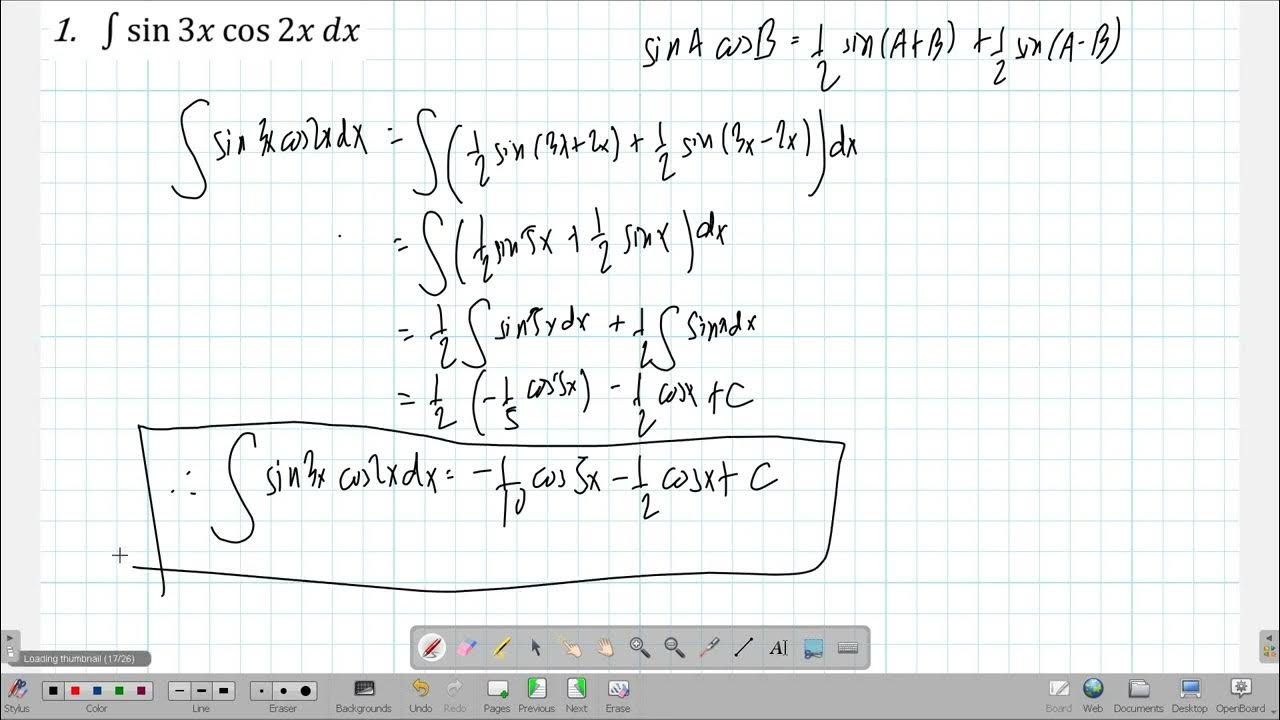 1. ∫ sin 3x cos 2x dx
sinA cosB = 1/2 sin(A+B) + 1/2 sin(A-B)
∫ sin 3x cos2x dx = ∫ (1/2 sin(3x+2x) + 1/2 sin(3x-2x)) dx
= ∫ (1/2 sin5x + 1/2 sinx) dx
= 1/2 ∫ sin5x dx + 1/2 ∫ sinx dx
= 1/2 (-1/5 cos5x) - 1/2 cosx + C
∴ ∫ sin3x cos2x dx = -1/10 cos5x - 1/2 cosx + C
Loading thumbnail (17/26)
Stylus Color Line Eraser Backgrounds Undo Redo Pages Previous Next Erase Board Web Documents Desktop OpenBoard